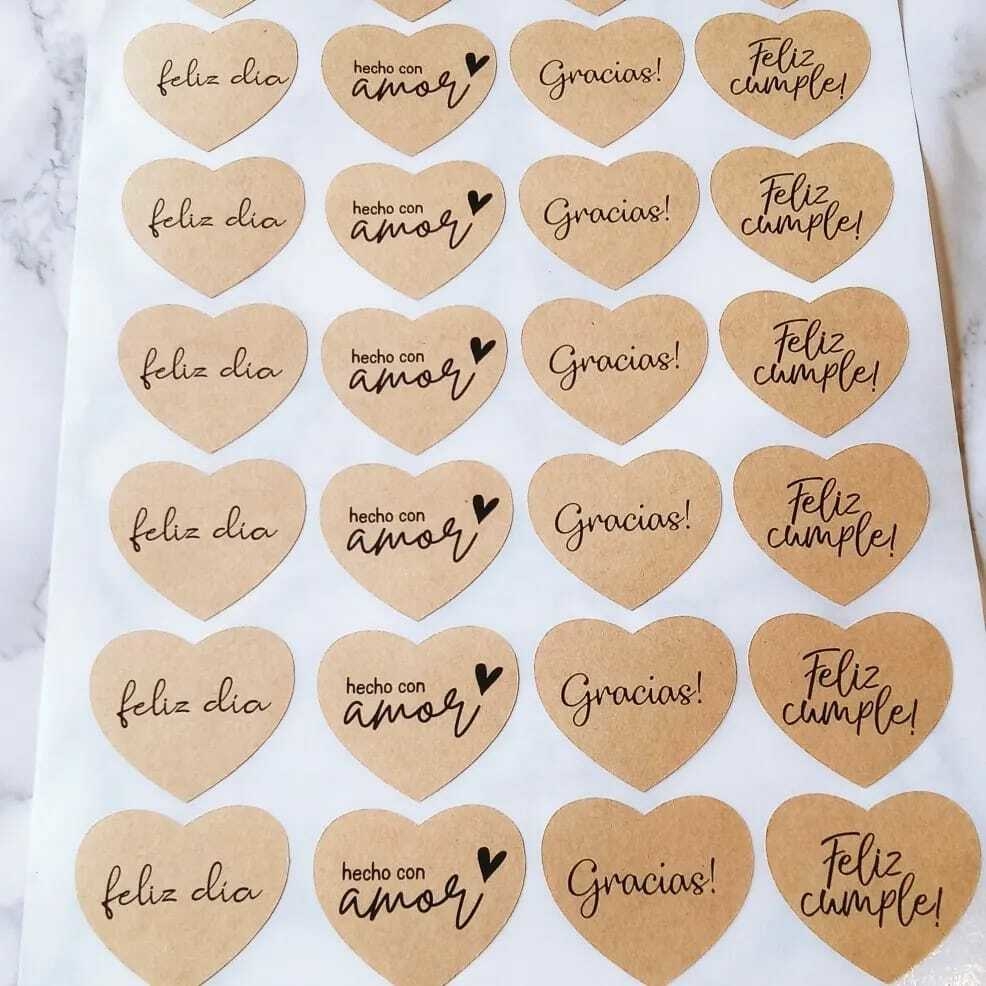 feliz día
hecho con
amor
Gracias!
Feliz
cumple!
feliz día
hecho con
amor
Gracias!
Feliz
cumple!
feliz día
hecho con
amor
Gracias!
Feliz
cumple!
feliz día
hecho con
amor
Gracias!
Feliz
cumple!
feliz día
hecho con
amor
Gracias!
Feliz
cumple!
feliz día
hecho con
amor
Gracias!
Feliz
cumple!